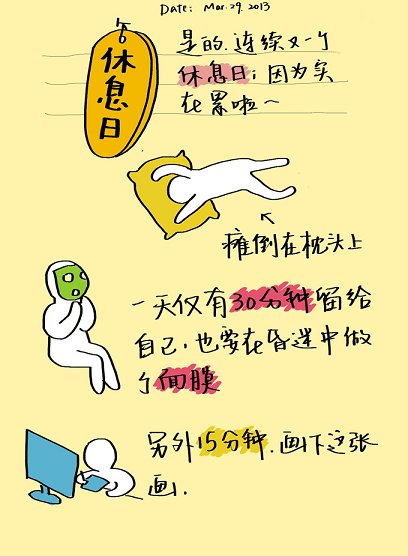 Date: Mar.29. 2013
休息日
是的.连续又一个
休息日;因为实
在累啦~
瘫倒在枕头上
一天仅有30分钟留给
自己,也要在昏迷中做
个面膜
另外15分钟.画下这张
画.